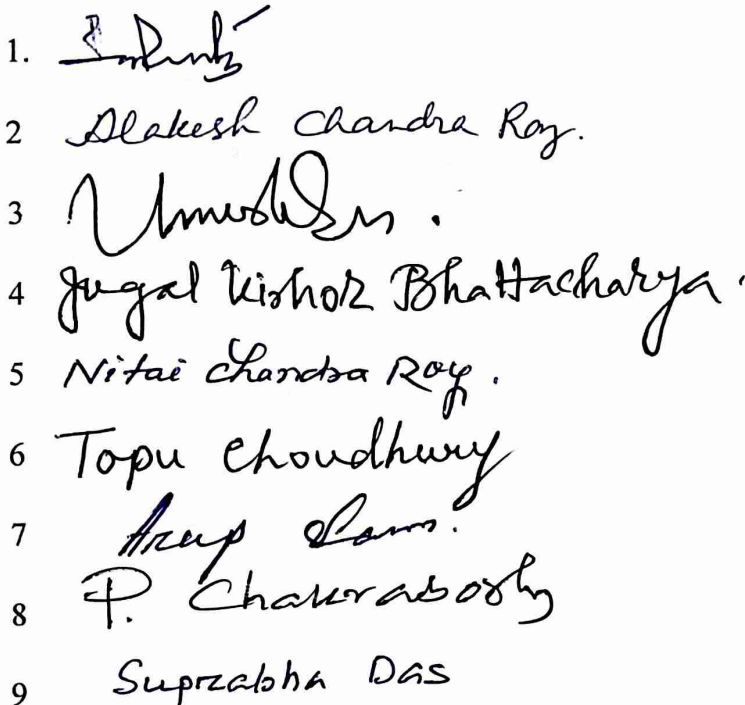 1.
2 Alakesh Chandra Roy.
3
4 Jugal Kishor Bhattacharya.
5 Nitai Chandra Roy.
6 Topu Choudhury
7 Arup
8 P. Chakraborty
9 Suprabha Das